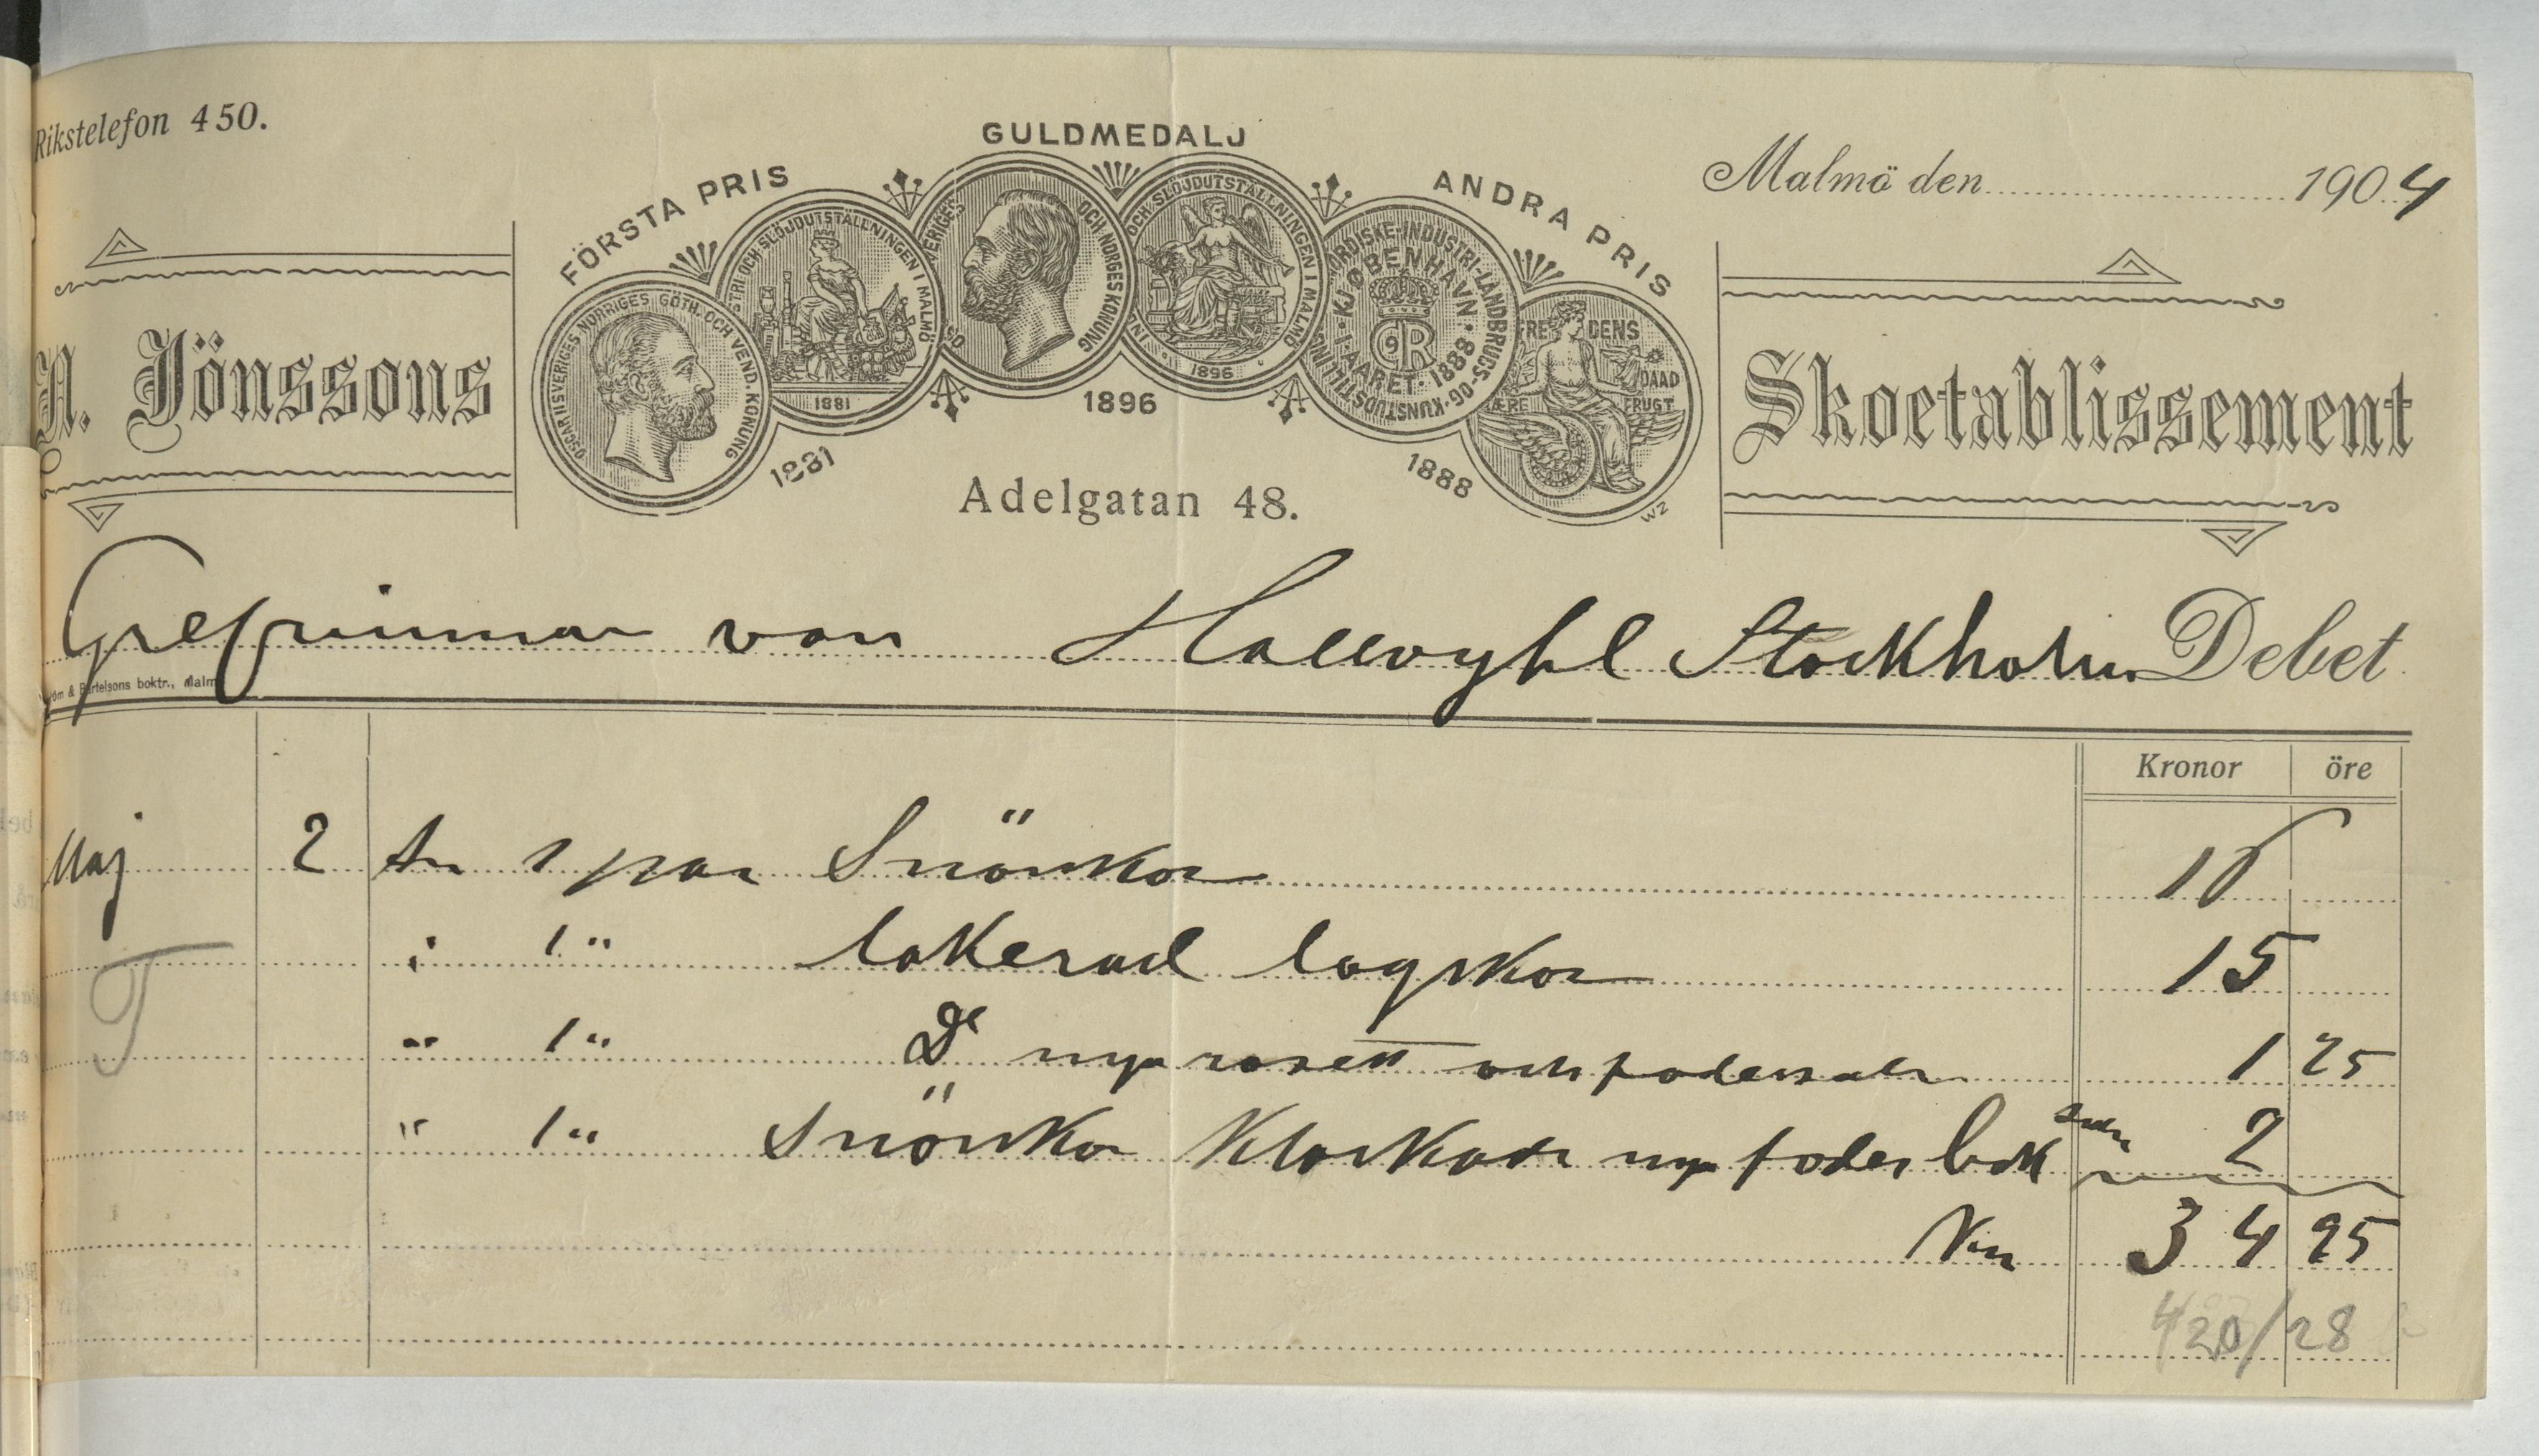 Rikstelefon 450.
GULDMEDALJ
FÖRSTA PRIS
ANDRA PRIS
Malmö den 1904
OSCAR II SVERIGES NORRIGES GÖTH. OCH VEND. KONUNG
STRI OCH SLÖJDUTSTÄLLNINGEN I MALMÖ
1881
VERIGES OCH NORGES KONUNG
OCH SLÖJDUTSTÄLLNINGEN I MALMÖ
1896
ORDISKE-INDUSTRI-LANDBRUGS-OG-KUNSTUDSTILLING
KJØBENHAVN
I AARET 1888
C9R
FREDENS
DAAD
ÆRE FRUGT
1881
1896
1888
WZ
A. Jönssons
Skoetablissement
Adelgatan 48.
Grefvinnan von Hallwyhl Stockholm Debet
& Bertelsons boktr., Malm
Kronor öre
Maj 2 An 1 par Snörskor 16
" 1 " lakerad lagskor 15
T " 1 " Do nya rosett och fodersulor 1 25
" 1 " Snörskor Klackade nya foder bak 2
34 25
420/28